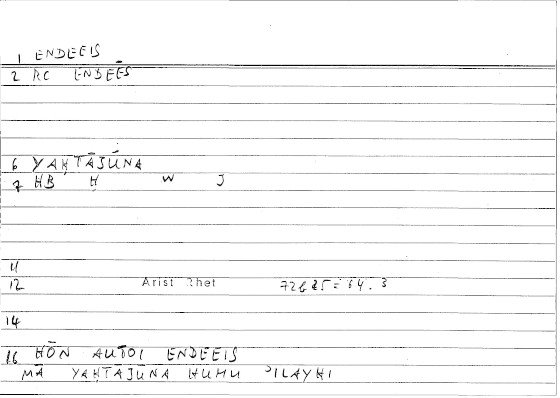 1 ENDEEIS
2 RC ENDEĒS
6 YAḤTĀJŪNA
7 HB Ḥ W J
11
12 Arist Rhet
14
16 HŌN AUTOI ENDEEIS
MĀ YAḤTĀJŪNA HUHU ʾILAYHI